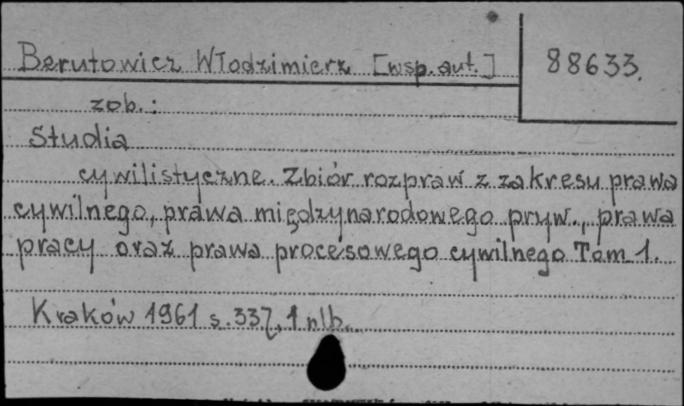 Berutowicz Włodzimierz [wsp. aut.] 88633.
zob.:
Studia
cywilistyczne. Zbiór rozpraw z zakresu prawa
cywilnego, prawa międzynarodowego pryw., prawa
pracy oraz prawa procesowego cywilnego Tom 1.
Kraków 1961 s. 337, 1 nlb.